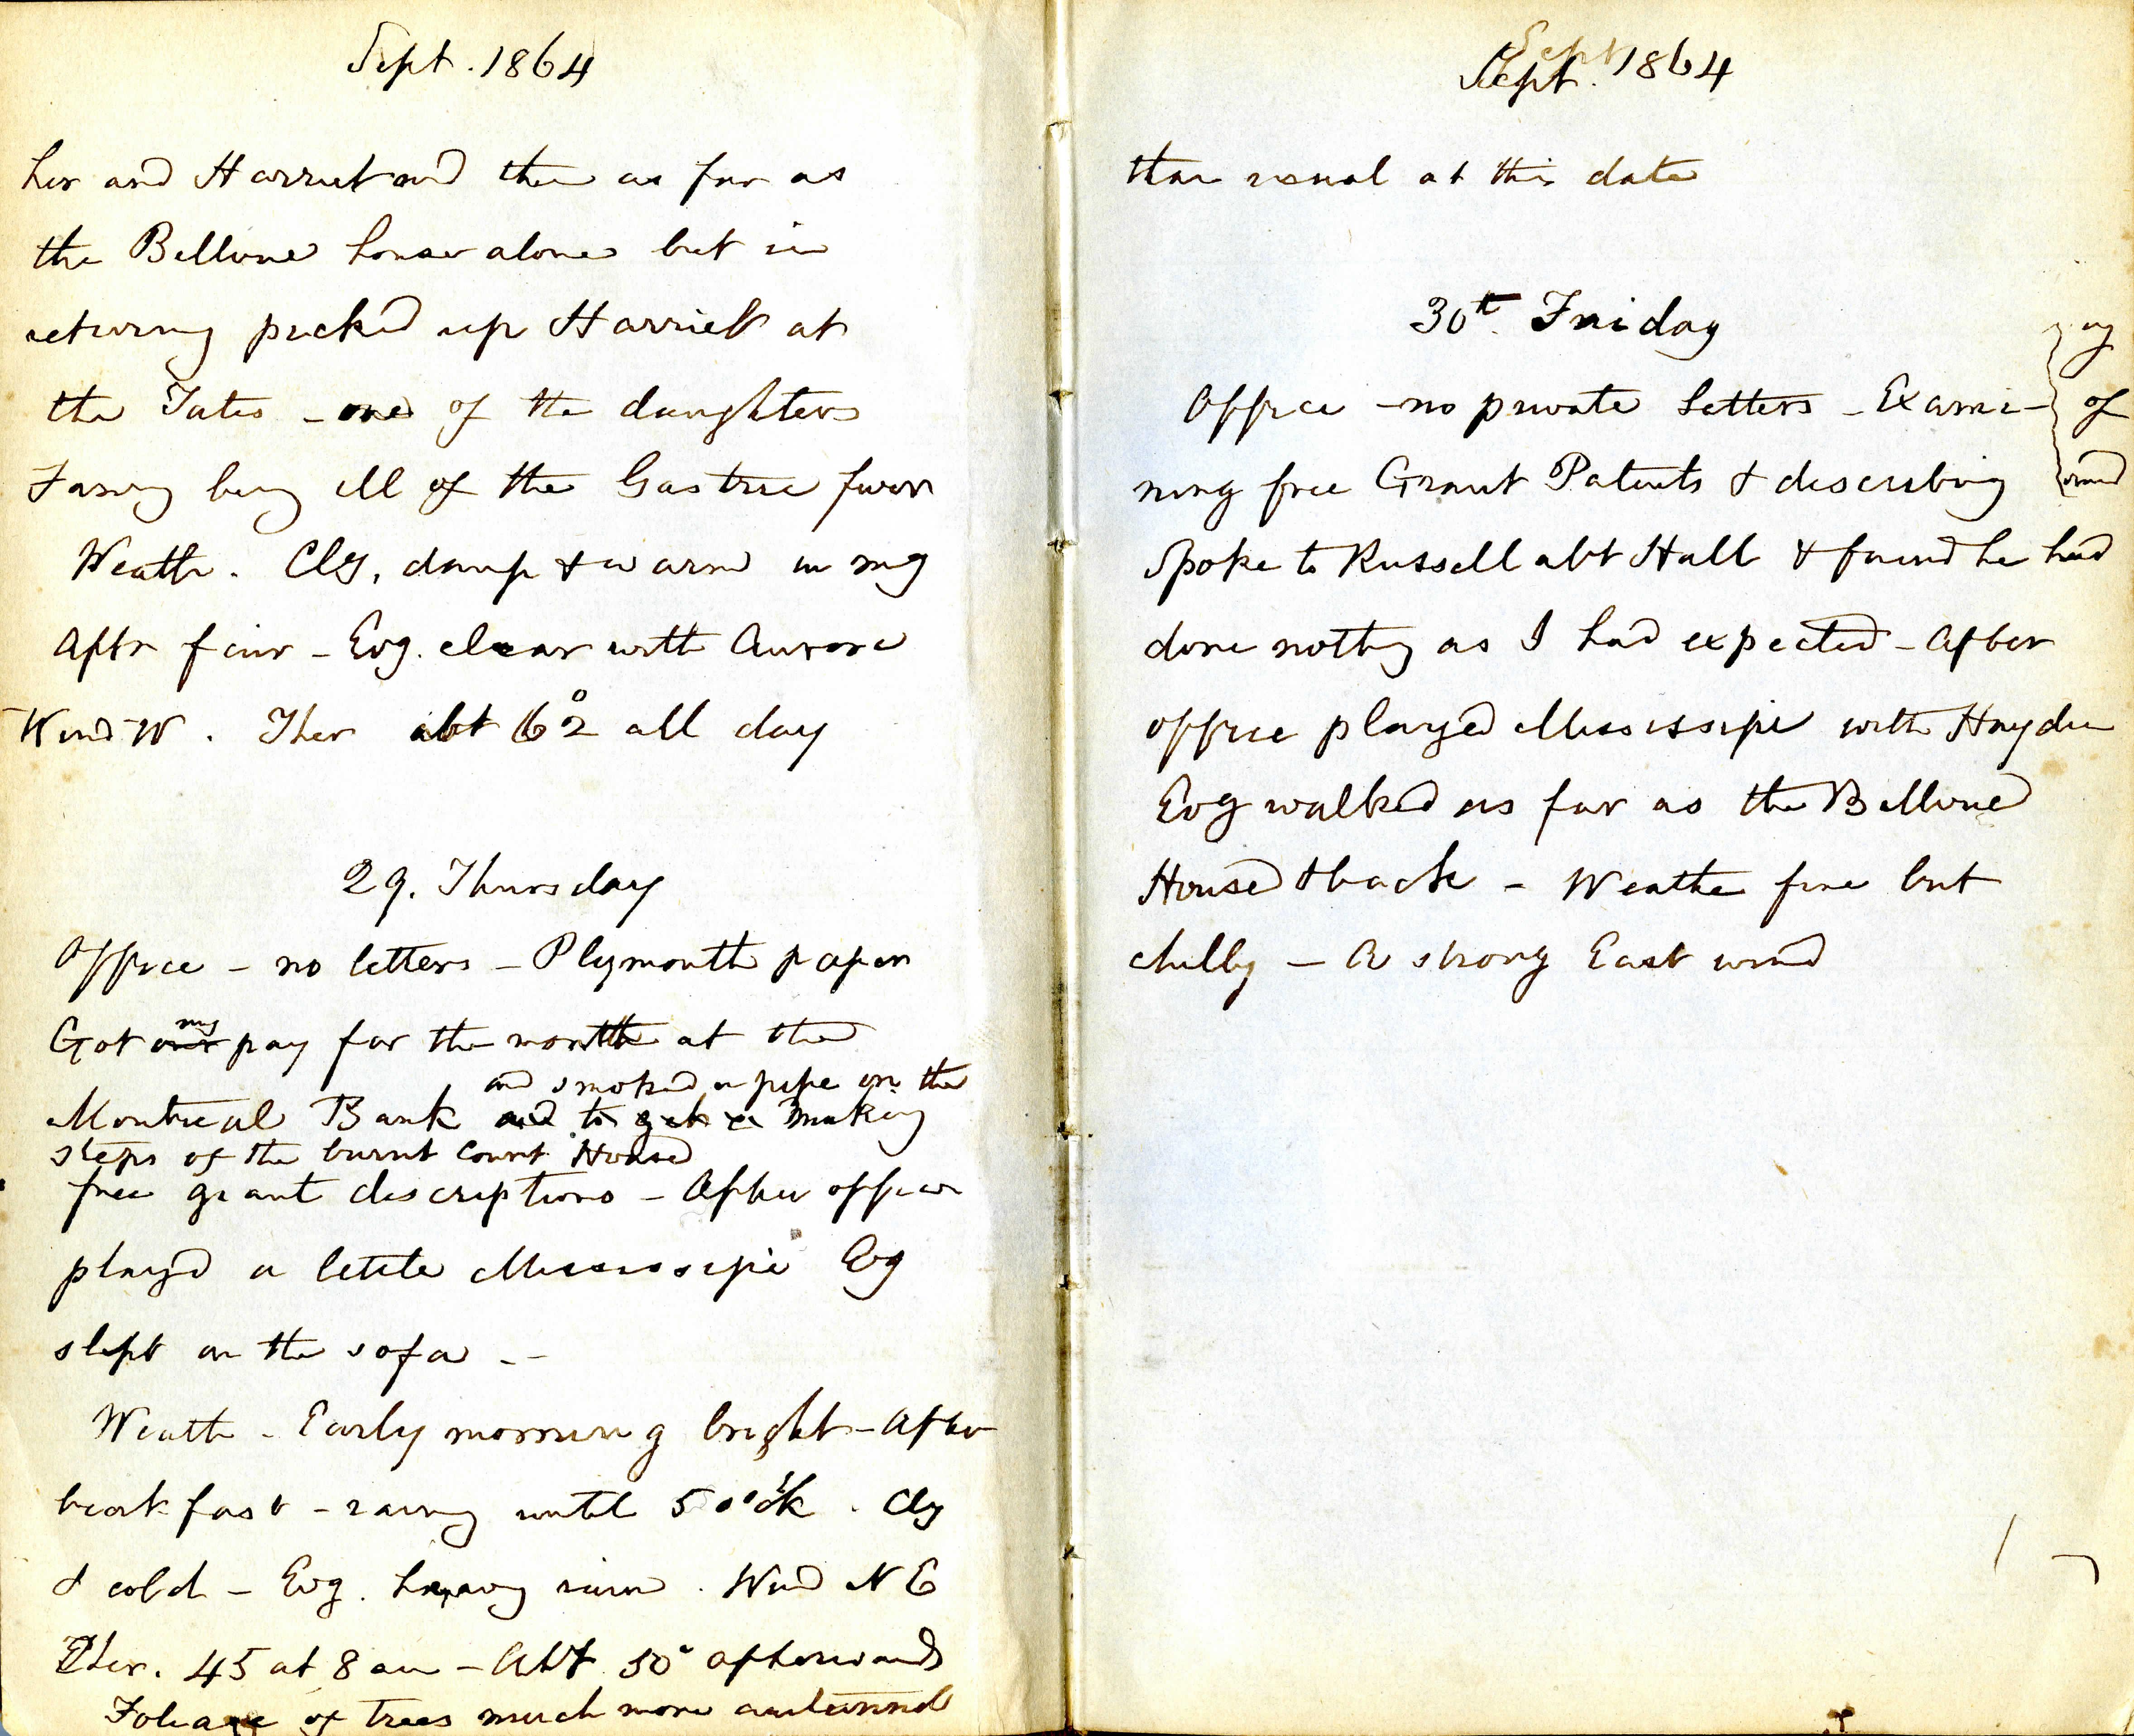 Sept. 1864
her and Harriet and then as far as
the Bellvue house alone but in
returning picked up Harriet at
the Tates - one of the daughters
Fanny being ill of the Gastric fever
Weathr. Cldy, damp & warm in mg
Aftn fair - Evg. clear with Aurora
Wind W. Ther abt 62° all day
29. Thursday
Office - no letters - Plymouth paper
Got our my pay for the month at the
and smoked a pipe on the
Montreal Bank and to get a making
steps of the burnt Court House
free grant descriptions - After office
played a little Mississipi Evg
slept on the sofa --
Weathr - Early morning bright - After
breakfast - raining until 5 o'ck. Cldy
& cold - Evg. heavy rain. Wind NE
Ther. 45 at 8 am - Abt 50° afterwards
Foliage of trees much more autumnal
Sept. 1864
than usual at this date
30th. Friday
Office - no private letters - Exami-
ning free Grant Patents & describing
Spoke to Russell abt Hall & found he had
done nothing as I had expected - After
office played Mississipi with Hayden
Evg walked as far as the Bellvue
House & back - Weather fine but
chilly - A strong East wind
of